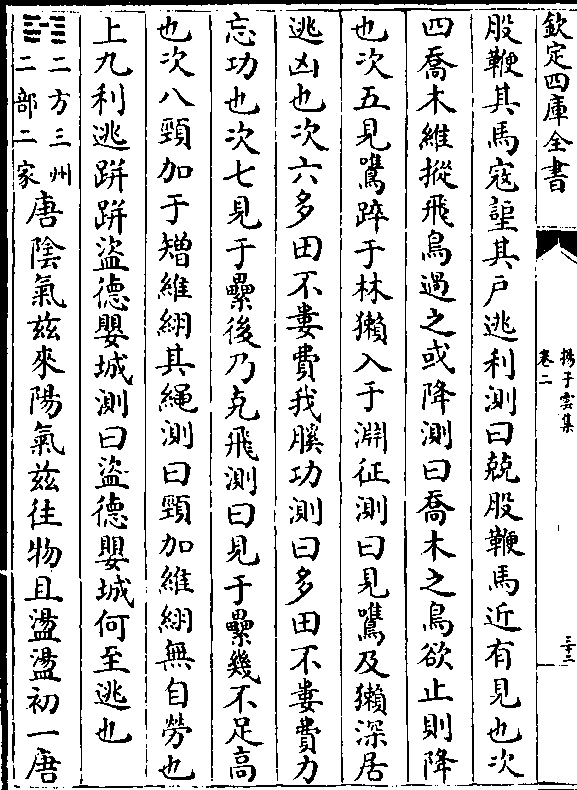 欽定四庫全書
揚子雲集
卷二
三十二
股鞭其馬寇𧩙其户逃利測曰兢股鞭馬近有見也次
四喬木維摐飛鳥過之或降測曰喬木之鳥欲止則降
也次五見鷕踤于林獺入于淵征測曰見鷕及獺深居
逃凶也次六多田不婁費我膎功測曰多田不婁費力
忘功也次七見于纍後乃克飛測曰見于纍幾不足高
也次八頸加于矰維䋙其繩測曰頸加維䋙無自勞也
上九利逃跰跰盜德嬰城測曰盜德嬰城何至逃也
二方三州
二部二家
唐陰氣兹來陽氣兹往物且盪盪初一唐